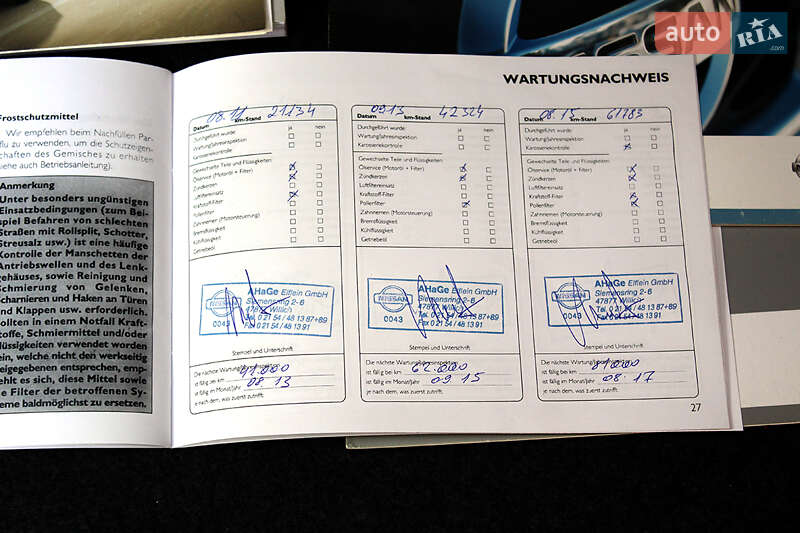 auto RIA.com
WARTUNGSNACHWEIS
Frostschutzmittel
Wir empfehlen beim Nachfüllen Par-
flu zu verwenden, um die Schutzeigen-
chaften des Gemisches zu erhalten
iehe auch Betriebsanleitung).
Anmerkung
Unter besonders ungünstigen
Einsatzbedingungen (zum Bei-
spiel Befahren von schlechten
Straßen mit Rollsplit, Schotter,
Streusalz usw.) ist eine häufige
Kontrolle der Manschetten der
Antriebswellen und des Lenk-
gehäuses, sowie Reinigung und
Schmierung von Gelenken,
Scharnieren und Haken an Türen
und Klappen usw. erforderlich.
ollten in einem Notfall Kraft-
toffe, Schmiermittel und/oder
lüssigkeiten verwendet worden
ein, welche nicht den werkseitig
eigegebenen entsprechen, emp-
ehlt es sich, diese Mittel sowie
ie Filter der betroffenen Sy-
eme baldmöglichst zu ersetzen.
Datum 08.11 km-Stand 21134
Durchgeführt wurde: ja nein
Wartung/Jahresinspektion
Karosseriekontrolle
Gewechselte Teile und Flüssigkeiten:
Ölservice (Motoröl + Filter)
Zündkerzen
Luftfiltereinsatz
Kraftstoff-Filter
Pollenfilter
Zahnriemen (Motorsteuerung)
Bremsflüssigkeit
Kühlflüssigkeit
Getriebeöl
NISSAN
0043
AHaGe Elflein GmbH
Siemensring 2-6
47877 Willich
Tel. 0 21 54 / 48 13 87+89
Fax 0 21 54 / 48 13 91
Stempel und Unterschrift
Die nächste Wartung/Jahresinspektion
ist fällig bei km 41.000
ist fällig im Monat/Jahr 08 13
je nach dem, was zuerst zutrifft.
Datum 09 13 km-Stand 42324
Durchgeführt wurde: ja nein
Wartung/Jahresinspektion
Karosseriekontrolle
Gewechselte Teile und Flüssigkeiten:
Ölservice (Motoröl + Filter)
Zündkerzen
Luftfiltereinsatz
Kraftstoff-Filter
Pollenfilter
Zahnriemen (Motorsteuerung)
Bremsflüssigkeit
Kühlflüssigkeit
Getriebeöl
NISSAN
0043
AHaGe Elflein GmbH
Siemensring 2-6
47877 Willich
Tel. 0 21 54 / 48 13 87+89
Fax 0 21 54 / 48 13 91
Stempel und Unterschrift
Die nächste Wartung/Jahresinspektion
ist fällig bei km 62.000
ist fällig im Monat/Jahr 09 15
je nach dem, was zuerst zutrifft.
Datum 08.15 km-Stand 61783
Durchgeführt wurde: ja nein
Wartung/Jahresinspektion
Karosseriekontrolle
Gewechselte Teile und Flüssigkeiten:
Ölservice (Motoröl + Filter)
Zündkerzen
Luftfiltereinsatz
Kraftstoff-Filter
Pollenfilter
Zahnriemen (Motorsteuerung)
Bremsflüssigkeit
Kühlflüssigkeit
Getriebeöl
NISSAN
0043
AHaGe Elflein GmbH
Siemensring 2-6
47877 Willich
Tel. 0 21 54 / 48 13 87+89
Fax 0 21 54 / 48 13 91
Stempel und Unterschrift
Die nächste Wartung/Jahresinspektion
ist fällig bei km 81000
ist fällig im Monat/Jahr 08.17
je nach dem, was zuerst zutrifft.
27